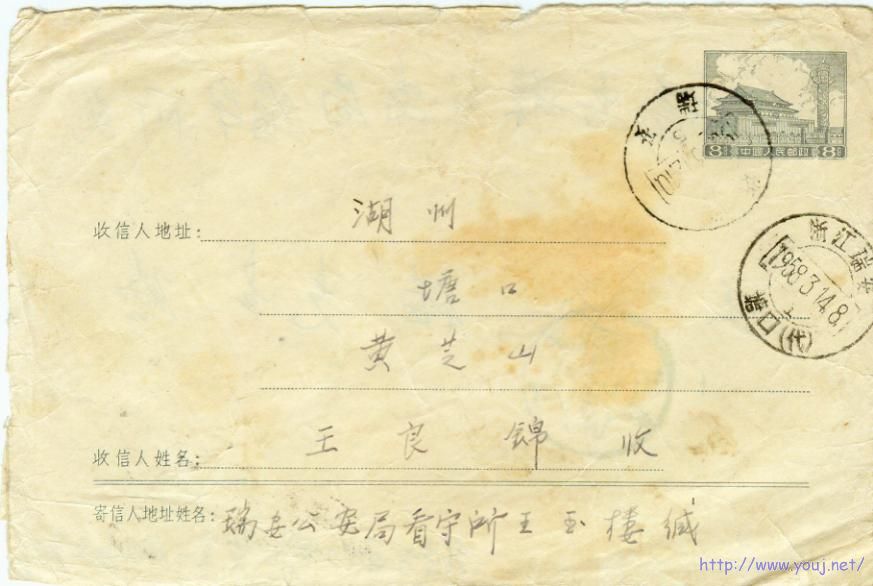 8 中国人民邮政 8
浙江瑞安
1958.3.14.8
(代)
收信人地址: 湖州
塘口
黄芝山
收信人姓名: 王良锦 收
寄信人地址姓名: 瑞安公安局看守所王玉楼缄
http://www.youj.net/